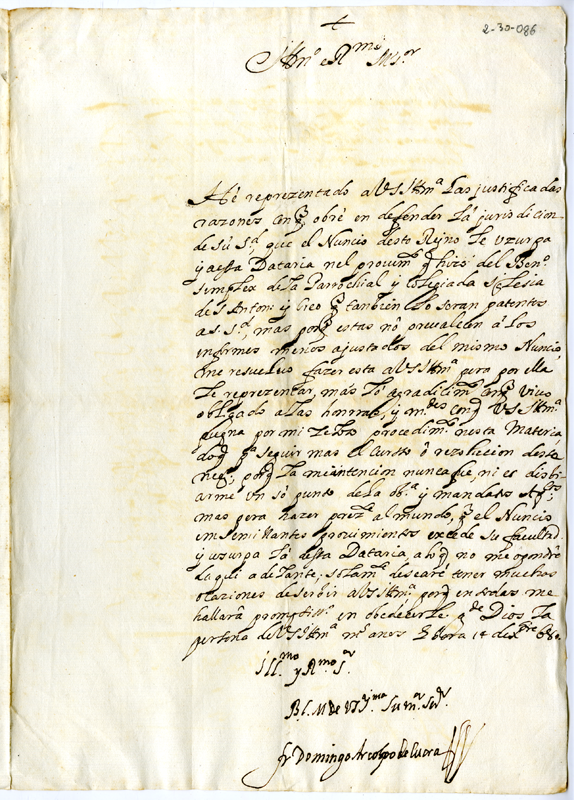 2-30-086
Illmo e Rmo Sor
Hé reprezentado a V.S. Illma las justificadas
razones con q obré en defender la jurisdicion
de su Sd, que el Nuncio desto Reyno le vzurpa
y aesta Dataria nel procuimto q hizo del Beno
simplex de la Parrochial y Colegiada Iglesia
de S Anton y creo q tambien lo seran patentes
a S. Sd, mas porq estas nó preualecen á los
informes menos ajustados del mismo Nuncio,
me resueluo fazer esta a V S Illma pera por ella
le reprezentar, mas lo agradecimto con q viuo
obligado a las honrras, y mdes con q V S Illma
pugna por mi zelozo procedimto nesta materia,
do q pa seguir mas el cursso ó rezolucion desta
nego; porq la mi intencion nunca fue, ni es disbi-
arme un só punto de la oba y mandatos Apcos;
mas pera hazer prezte al mundo, q el Nuncio
in semillantes prouimientos excede su facultad
y uzurpa la desta Dataria, a lo q no me opondre
daqui adelante; solamte desearé tener muchas
ocaziones de seruir a V S Illma porq en todas me
hallará promptissmo en obedecerle gde Dios la
persona de V S Illma ms anos Ebora 14 dexbre 680
Illmo y Rmo Sr
B. L. M de V S Illma Su mor Serr
fr Domingo Arcobpo de Euora